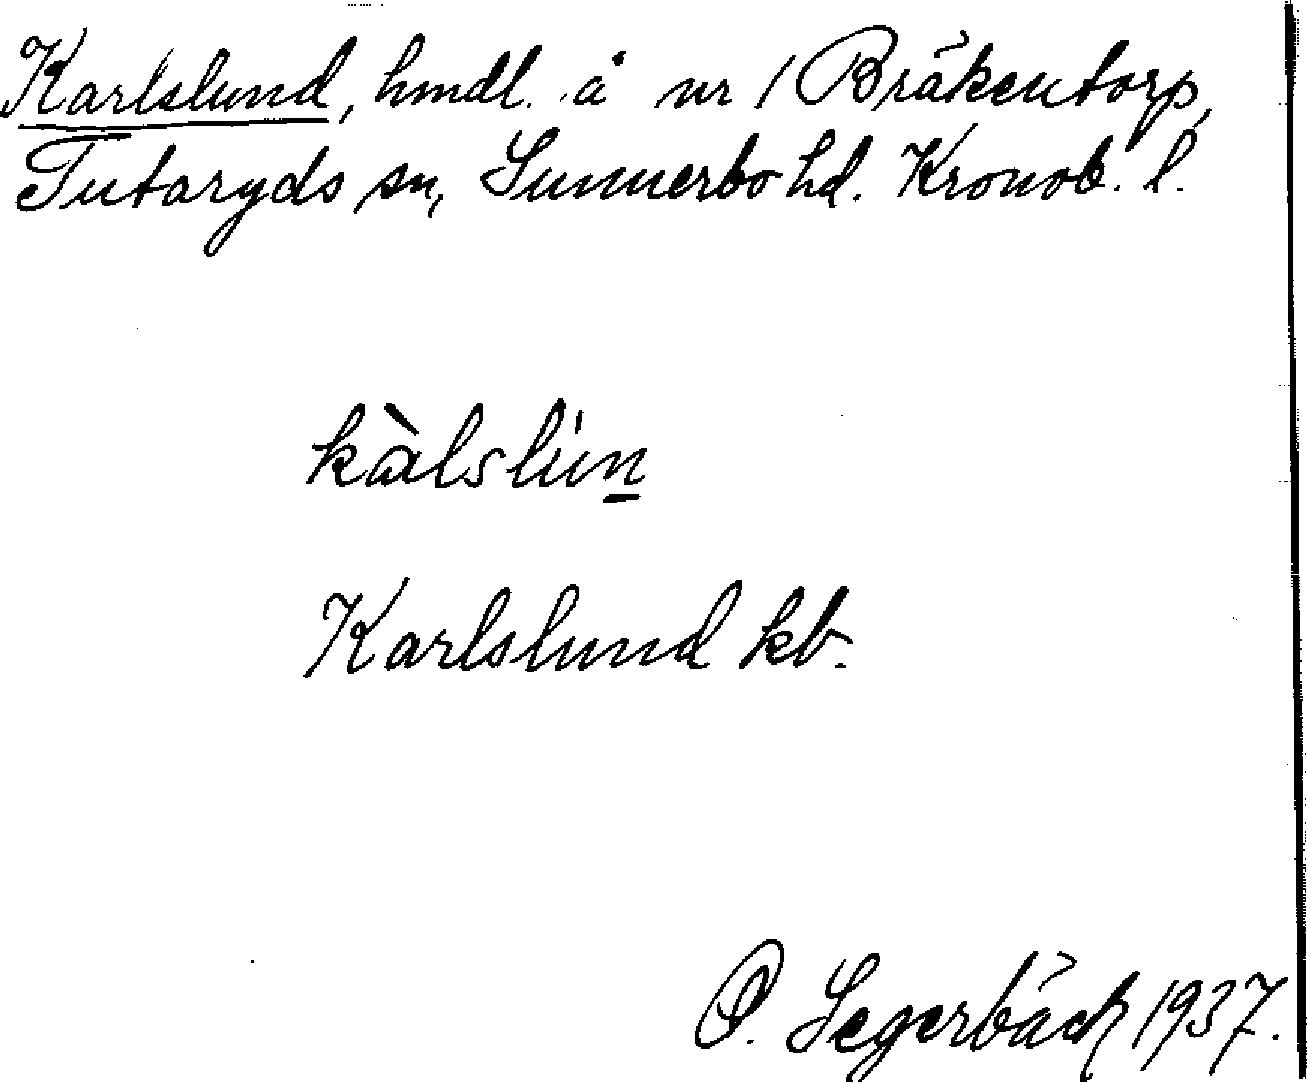 Karlslund, hmdl. å nr 1 Bräkentorp,
Tutaryds sn, Sunnerbo hd. Kronob. l.
kàlslún
Karlslund kb.
O. Segerbäck 1937.